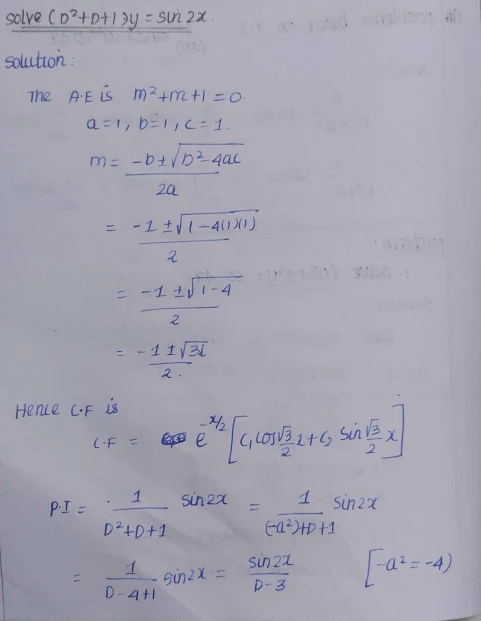 solve (D²+D+1)y = sin 2x
Solution:
The A.E is m²+m+1 = 0.
a=1, b=1, c=1.
m = -b±√b²-4ac / 2a
= -1 ±√1-4(1)(1) / 2
= -1 ±√1-4 / 2
= -1 ±√3i / 2.
Hence C.F is
C.F = e^-x/2 [C₁ cos √3/2 x + C₂ sin √3/2 x]
P.I = 1/D²+D+1 sin2x = 1/(-a²)+D+1 sin2x
= 1/D-4+1 sin2x = sin2x/D-3 [-a² = -4)